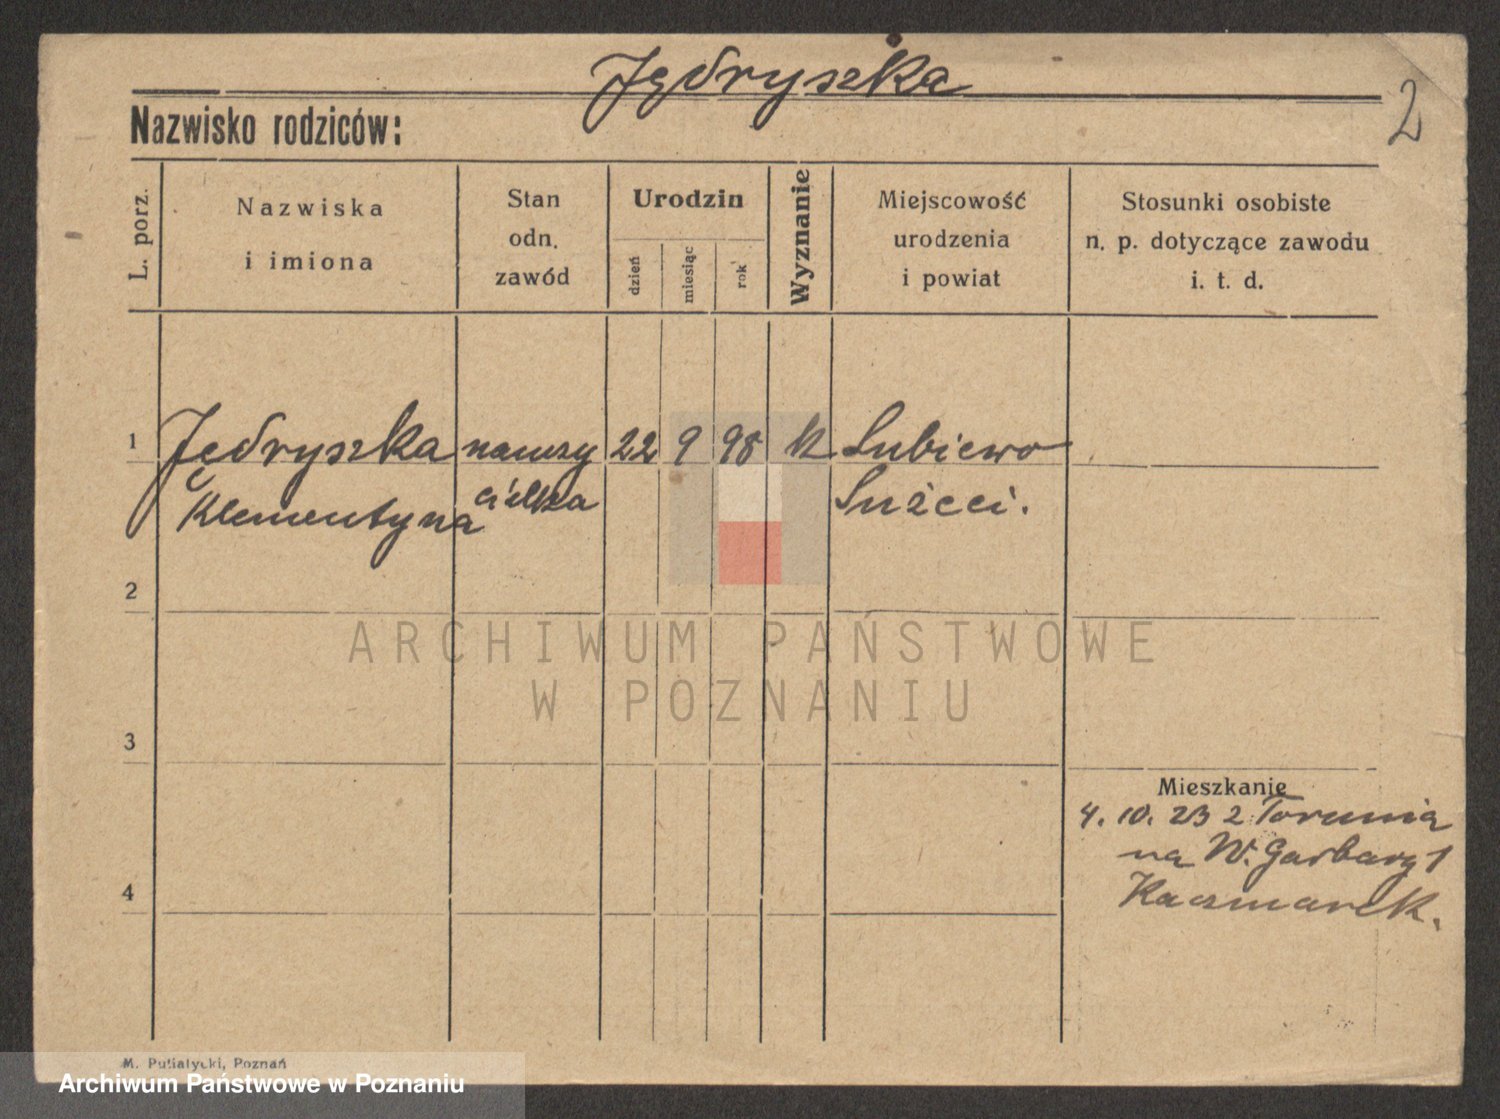 Jędryszka
2
Nazwisko rodziców:
L. porz.
Nazwiska
i imiona
Stan
odn.
zawód
Urodzin
dzień
miesiąc
rok
Wyznanie
Miejscowość
urodzenia
i powiat
Stosunki osobiste
n. p. dotyczące zawodu
i. t. d.
1 Jędryszka nauczy 22 9 98 k Lubiewo
Klementyna cielka
2
ARCHIWUM PAŃSTWOWE
W POZNANIU
3
Mieszkanie
4. 10. 23 z Torunia
na W. Garbary 1
4
Kaczmarek.
M. Putiatycki, Poznań
Archiwum Państwowe w Poznaniu